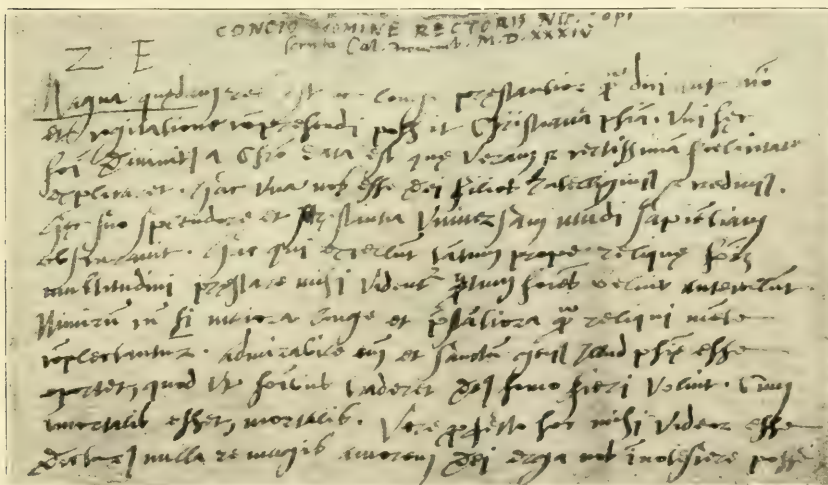 CONCIO NOMINE RECTORIS NIC. Copi
scripta Cal. Novemb. M.D.XXXIV
Z E
Magna quędam res est ac longe pręstantior q̃ dici aut
et cogitatione cõprehendi possit Christiana phia. Uni hęc
divinit a Chro data est quę veram et certissimam fœlicitatē
explicaret. Hac una nos esse dei filios intelligimus et credimus.
Hęc suo splendore et pręstantia universam mundi sapientiam
obscuravit. Hac qui excellunt tantum prope reliquę
multitudini pręstare mihi videntr q̃tum beluis antecellunt.
Nimirũ longe et q̃ reliqui mente
cõplectantur. Admirabile eñ et sanctum genus illud phię esse
oportet, quod ut traderet dei homo fieri voluit. Cum
immortalis esset, mortalis. Vere profecto hoc mihi videor esse
nulla re magis amorem dei erga nos innotescere posse